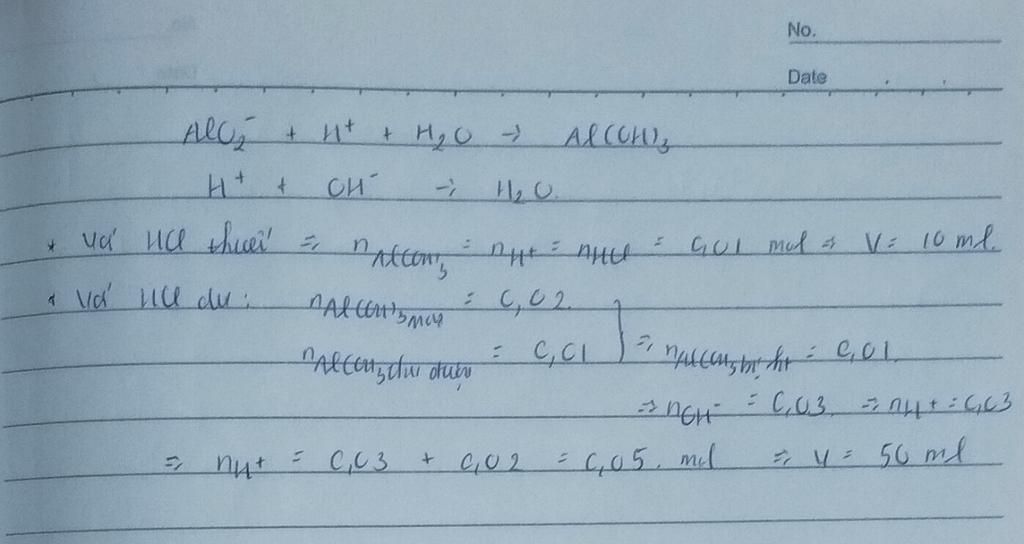 No.
Date
AlO₂⁻ + H⁺ + H₂O → Al(OH)₃
H⁺ + OH⁻ → H₂O.
* Với HCl thiếu ⇒ nAl(OH)₃ = nH⁺ = nHCl = 0,01 mol ⇒ V = 10 ml.
* Với HCl dư: nAl(OH)₃ max = 0,02
nAl(OH)₃ thu được = 0,01 } ⇒ nAl(OH)₃ bị ht = 0,01.
⇒ nOH⁻ = 0,03. ⇒ nH⁺ = 0,03
⇒ nH⁺ = 0,03 + 0,02 = 0,05. mol ⇒ V = 50 ml